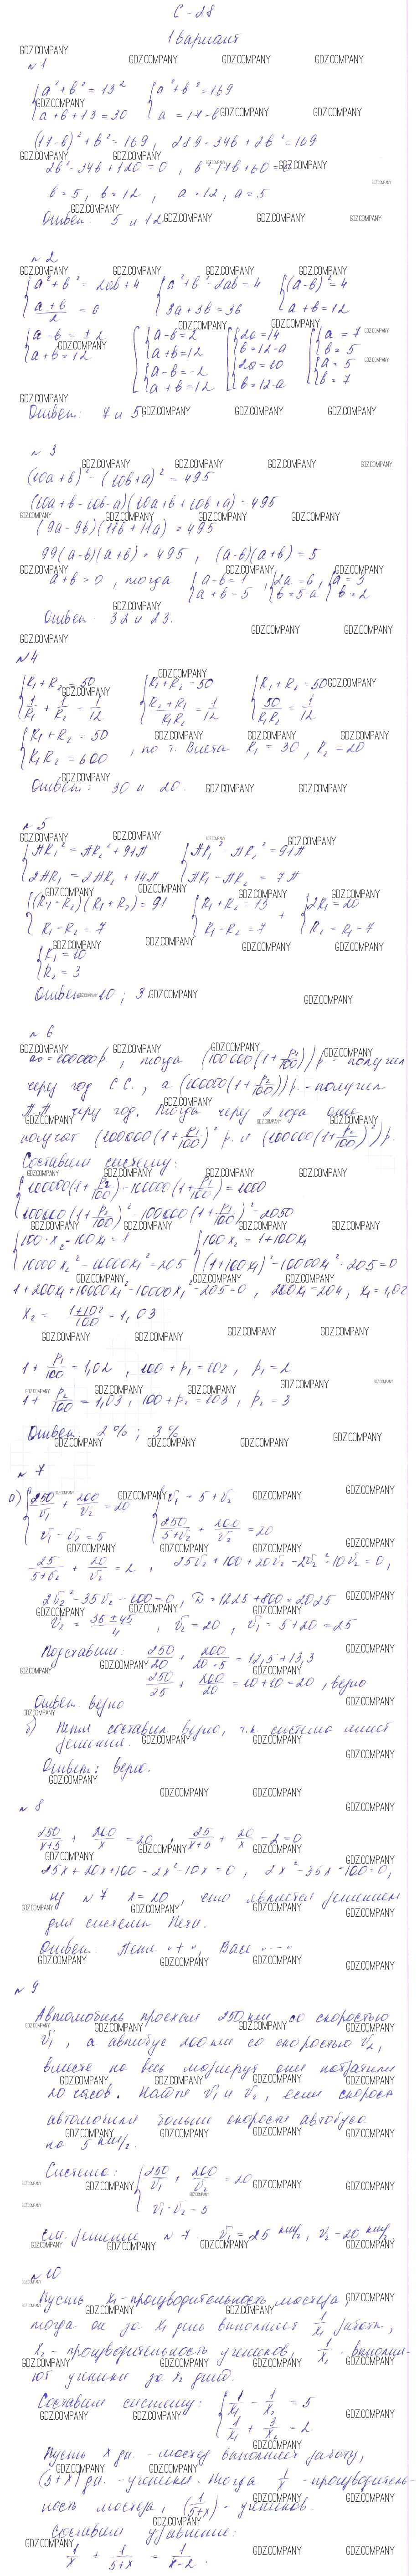 С-28
1 вариант
№1
a² + b² = 13²   a² + b² = 169
a + b + 13 = 30   a = 17 - b
(17-b)² + b² = 169, 289 - 34b + 2b² = 169
2b² - 34b + 120 = 0, b² - 17b + 60 = 0
b = 5, b = 12, a = 12, a = 5
Ответ: 5 и 12
№2
a² + b² = 2ab + 4   a² + b² - 2ab = 4   (a-b)² = 4
(a+b)/2 = 6   3a + 3b = 36   a + b = 12
a - b = ±2   a - b = 2   2a = 14   a = 7
a + b = 12   a + b = 12   b = 12 - a   b = 5
a - b = -2   2a = 10   a = 5
a + b = 12   b = 12 - a   b = 7
Ответ: 7 и 5
№3
(10a + b)² - (10b + a)² = 495
(10a + b - 10b - a)(10a + b + 10b + a) = 495
(9a - 9b)(11b + 11a) = 495
99(a-b)(a+b) = 495, (a-b)(a+b) = 5
a + b > 0, тогда a - b = 1   2a = 6   a = 3
a + b = 5   b = 5 - a   b = 2
Ответ: 32 и 23.
№4
R₁ + R₂ = 50   R₁ + R₂ = 50   R₁ + R₂ = 50
1/R₁ + 1/R₂ = 1/12   (R₂ + R₁)/(R₁R₂) = 1/12   50/(R₁R₂) = 1/12
R₁ + R₂ = 50
R₁R₂ = 600, по т. Виета R₁ = 30, R₂ = 20
Ответ: 30 и 20.
№5
πR₁² = πR₂² + 91π   πR₁² - πR₂² = 91π
2πR₁ = 2πR₂ + 14π   πR₁ - πR₂ = 7π
(R₁ - R₂)(R₁ + R₂) = 91   R₁ + R₂ = 13 +   2R₁ = 20
R₁ - R₂ = 7   R₁ - R₂ = 7   R₂ = R₁ - 7
R₁ = 10
R₂ = 3
Ответ: 10; 3.
№6
тогда (100000(1 + p₁/100)) р - получил
через год С.С., а (100000(1 + p₂/100)) р. - получил
П.П. через год. Тогда через 2 года они
получат (100000(1 + p₁/100)² р. и (100000(1 + p₂/100)²) р.
Составим систему:
100000(1 + p₂/100) - 100000(1 + p₁/100) = 1000
100000(1 + p₂/100)² - 100000(1 + p₁/100)² = 2050
100·x₂ - 100x₁ = 1   100x₂ = 1 + 100x₁
10000x₂² - 10000x₁² = 205   (1 + 100x₁)² - 10000x₁² - 205 = 0
1 + 200x₁ + 10000x₁² - 10000x₁² - 205 = 0, 200x₁ = 204, x₁ = 1,02
x₂ = (1+102)/100 = 1,03
1 + p₁/100 = 1,02, 100 + p₁ = 102, p₁ = 2
1 + p₂/100 = 1,03, 100 + p₂ = 103, p₂ = 3
Ответ: 2%; 3%.
№7
а) 250/v₁ + 200/v₂ = 20   v₁ = 5 + v₂
v₁ - v₂ = 5   250/(5+v₂) + 200/v₂ = 20
25/(5+v₂) + 20/v₂ = 2, 25v₂ + 100 + 20v₂ - 2v₂² - 10v₂ = 0,
2v₂² - 35v₂ - 100 = 0, D = 1225 + 800 = 2025
v₂ = (35 ± 45)/4, v₂ = 20, v₁ = 5 + 20 = 25
Подставим: 250/20 + 200/(20-5) = 12,5 + 13,3
250/25 + 200/20 = 10 + 10 = 20, верно
Ответ: верно
б) Петя составил верно, т.к. система имеет
решения.
Ответ: верно.
№8
250/(x+5) + 200/x = 20, 25/(x+5) + 20/x - 2 = 0
25x + 20x + 100 - 2x² - 10x = 0, 2x² - 35x - 100 = 0,
из №7 x = 20, что является решением
для системы Пети.
Ответ: Петя "+", Вася "—"
№9
Автомобиль проехал 250 км со скоростью
v₁, а автобус 200 км со скоростью v₂,
вместе на весь маршрут они потратили
20 часов. Найдите v₁ и v₂, если скорость
автомобиля больше скорости автобуса
на 5 км/ч.
Система: 250/v₁ + 200/v₂ = 20
v₁ - v₂ = 5
см. решение №7. v₁ = 25 км/ч, v₂ = 20 км/ч.
№10
Пусть x₁ - производительность мастера,
тогда он за x₁ день выполняет 1/x₁ работы,
x₂ - производительность учеников, 1/x₂ - выполня-
ют ученики за x₂ дней.
Составим систему: 1/x₁ - 1/x₂ = 5
1/x₁ + 3/x₂ = 2
Пусть x дн. - мастер выполняет работу,
(5+x) дн. - ученики. Тогда 1/x - производитель-
ность мастера, (1/(5+x)) - учеников.
Составим уравнение:
1/x + 1/(5+x) = 1/(x-2).
GDZ.COMPANY